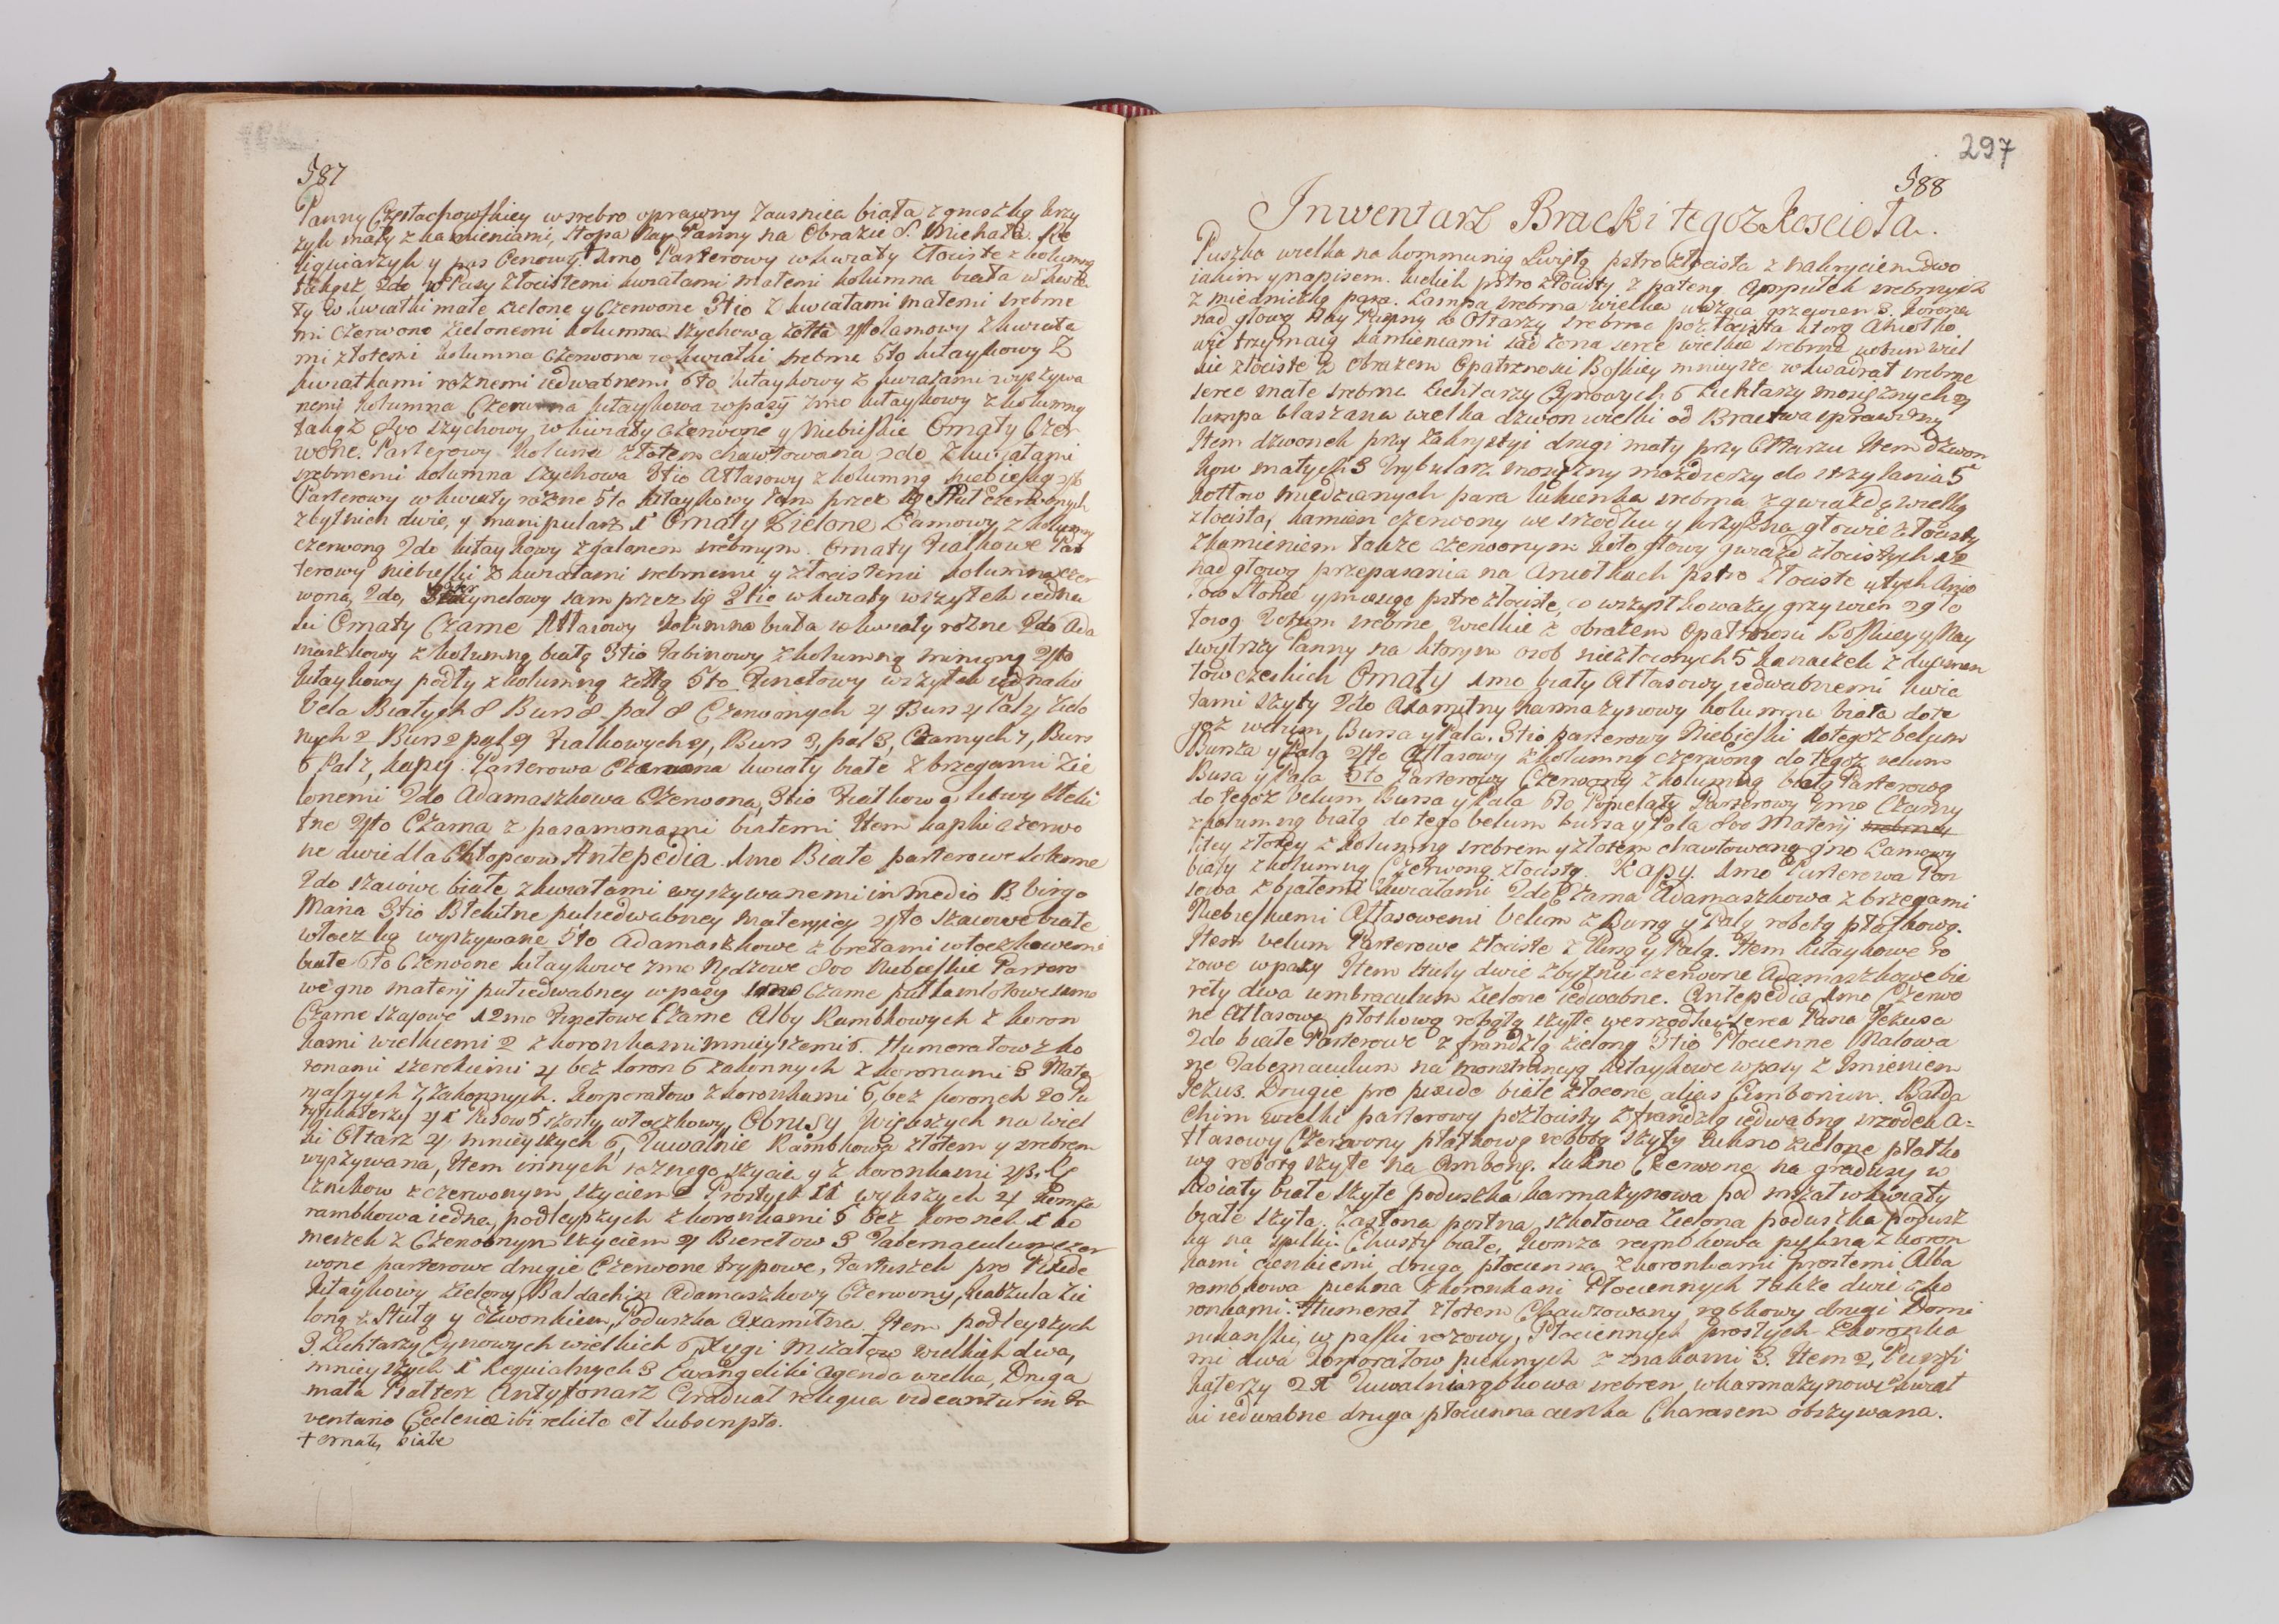 587
Panny Częstochowskiey w srebro oprawny Zausnica biała z gruszką krzy
zyk mały z kamieniami, stopa Nay Panny na Obrazie S. Michała. Re
liquiarzyk y pas Cenowy. 1mo Parterowy w kwiaty złociste z kolumną
takąsz 2do w Pasy złocistemi kwiatami małemi kolumna biała w kwia
ty w kwiatki małe zielone y czerwone 3tio z kwiatami małemi srebrne
mi czerwono zielonemi kolumna szychowa żołta 4to lamowy z kwiata
mi złotemi kolumna czerwona w kwiatki srebrne 5to kitaykowy z
kwiatkami roznemi iedwabnemi, 6to kitaykowy z kwiatami wyszywa
nemi kolumna Czerwona kitaykowa w pasy 7mo kitaykowy z kolumną
takąż 8vo szychowy w kwiaty czerwone y Niebieskie Ornaty Czer
wone. Parterowy kolumna złotem chawtowana 2do z kwiatami
srebrnemi kolumna szychowa 3tio Atłasowy z kolumną niebieską 4to
Parterowy w kwiaty rozne 5to kitaykowy tam przez się Stuł czerwonych
zbytnich dwie, y manipularz 1 Ornaty Zielone Lamowy z kolumną
czerwoną 2do kitaykowy z galonem srebrnym. Ornaty Fialkowe Par
terowy niebieski z kwiatami srebrnemi y złocistemi kolumna czer
wona, 2do, sam przez się 3tio w kwiaty wszytek iedna
ki Ornaty Czarne Atłasowy kolumna biała w kwiaty rozne 2do Ada
maszkowy z kolumną białą 3tio Tabinowy z kolumną mieniąną 4to
kitaykowy podły z kolumną żołtą 5to Trzetowy wszytek iednaki
Vela Białych 8 Burs 8 pal 8 Czerwonych 4 Burs 4 Pal 4 Zielo
nych 2 Burs 2 pal 2 Fialkowych 4, Burs 3, pal 3, Czarnych 7, Burs
6 Pal 7, kapy. Parterowa Czerwona kwiaty białe z brzegami zie
lonemi 2do Adamaszkowa Czerwona, 3tio Fialkowa, kwiaty błęki
tne 4to Czarna z pasamonami białemi Item kapki czerwo
ne dwie dla Chłopcow Antepedia 1mo Białe parterowe solenne
2do szaiowe białe z kwiatami wyszywanemi in medio B. Virgo
Maria 3tio Błękitne pułiedwabney materyiey 4to szaiowe białe
włoczką wyszywane 5to Adamaszkowe z bretami włoczkowemi
białe 6to Czerwone kitaykowe 7mo Rydzowe 8vo Niebieskie Partero
we 9no materij pułiedwabney w pasy 10mo Czarne 11mo
Czarne szaiowe 12mo Trzetowe Czarne Alby Rambkowych z koron
kami wielkiemi 2 z koronkami mnieyszemi 6. Humerałow z ko
ronami szerokiemi 4 bez koron 6 zakonnych z koronami 3 Mate
ryalnych 7, zakonnych. Korporałow z koronkami 6, bez koronek 20 Pu
ryfikaterzy 41 Pasow 5 szosty włoczkowy, Obrusy Większych na wiel
ki Ołtarz 4, mnieyszych 6, Tuwalnie Rambkowa złotem y srebrem
wyszywana, Item innych roznego szycia y z koronkami 43, Rę
cznikow z czerwonym szyciem 2 Prostych 11 wyższych 4 Komża
rambkowa iedna, podleyszych z koronkami 5 bez koronek 1 ko
meszek z Czerwonym szyciem 4 Bieretow 3 Tabernaculum czer
wone parterowe drugie Czerwone trypowe, Fartuszek pro Pixide
kitaykowy zielony, Baldachin Adamaszkowy Czerwony, kabzula zie
lona z Stułą y dzwonkiem, Poduszka Axamitna. Item podleyszych
3. Lichtarzy Cynowych wielkich 6, Xięgi Mszałow wielkich dwa,
mnieyszych 1 Requialnych 3 Ewangeliki Agenda wielka, Druga
mała Psałterz Antyfonarz Graduał reliqua videantur in In
ventario Ecclesiæ ibi relicto et subscripto.
+ ornaty białe
297
588
Inwentarz Bracki tegoz Kosciola.
Puszka wielka na kommunią Swiętą pstro złocista z nakryciem dwo
iakim y napisem. Kielich pstro złocisty z pateną Ampułek srebrnych
z miedniczką para. Lampa srebrna wielka ważąca grzywien 3. korona
nad głową Nay Panny w Ołtarzu srebrna pozłocista ktorą Aniołko
wie trzymaią kamieniami sadzona serce wielkie srebrne votum wiel
kie złociste z Obrazem Opatrznosci Boskiey mnieysze w kwadrat srebrne
serce małe srebrne Lichtarzy Cynowych 6 Lichtarzy mosiężnych 4
lampa blaszana wielka dzwon wielki od Bractwa sprawiony
Item dzwonek przy Zakrystyi drugi mały przy Ołtarzu Item dzwon
kow małych 3 Trybularz mosiężny mozdzierzy do strzylania 5
kotłow miedzianych para sukienka srebrna z gwiazdą wielką
złocistą, kamien czerwony we srzodku y krzyż na głowie złocisty
z kamieniem także czerwonym koło głowy gwiazd złocistych 12
nad głową przepasania na Aniołkach pstro złociste u tych Anio
łow Słonce y miesiąc pstro złociste, co wszystko waży grzywien 29 ło
tow 9 Votum srebrne Wielkie z obrazem Opatrznosci Boskiey y Nay
swiętrzey Panny na ktorym osob niezłoconych 5 kanaczek z dyamen
tow czeskich Ornaty 1mo biały Atłasowy iedwabnemi kwia
tami szyty 2do Axamitny karmazynowy kolumna biała do te
goż welum, Bursa y Pala. 3tio parterowy Niebieski do tegoz velum
Bursa y Pala 4to Atłasowy z kolumną czerwoną do tegoż velum
Bursa y Pala 5to Parterowy Czerwony z kolumną białą Parterową
do tegoż Velum, Bursa y Pala 6to Popielaty Parterowy 7mo Czarny
z kolumną białą do tego velum bursa y Pala 8vo Materij srebrney
litey złotey z kolumną srebrem y złotem chawtowaną 9no Lamowy
biały z kolumną Czerwoną złocistą. Kapy. 1mo Parterowa Pon
sowa z białemi kwiatami 2do Czarna Adamaszkowa z brzegami
Niebieskiemi Atłasowemi Velum z Bursą y Palą robotą płatkową.
Item velum Parterowe złociste z Bursą y Palą. Item kitaykowe ro
zowe w pasy Item stuły dwie zbytnie czerwone Adamaszkowe bie
rety dwa umbraculum zielone iedwabne. Antepedia 1mo Czerwo
ne Atłasowe płotkową robotą szyte we srzodku serca Pana Jezusa
2do białe Parterowe z frandzlą zieloną 3tio Płocienne Malowa
ne Tabernaculum na monstrancyą kitaykowe w pasy z Imieniem
Jezus. Drugie pro pixide białe złocone alias Cimborium. Balda
chim wielki parterowy pozłocisty z frandzlą iedwabną srzodek A=
tłasowy Czerwony płatkową robotą szyty Sukno zielone płatko
wą robotą szyte na Ambonę. Sukno Czerwone na gradusy w
kwiaty białe szyte poduszka karmazynowa pod mszał w kwiaty
białe szyta. Zasłona postna szkotowa zielona poduszka podusz
ka na szpilki Chusty białe, komza rambkowa piękna z koron
kami cienkiemi, druga płocienna z koronkami prostemi Alba
rambkowa piękna z koronkami Płociennych także dwie z ko
ronkami: Humerał złotem Chawtowany rąbkowy drugi Domi
nikanski, w paski rozowy, Płociennych prostych z koronka
mi dwa Korporałow pięknych z znakami 3. Item 2, Puryfi
katerzy 21 Tuwalnia rąbkowa srebrem w karmazynowe kwiat
ki iedwabne druga płocienna cienka Charasem obszywana.